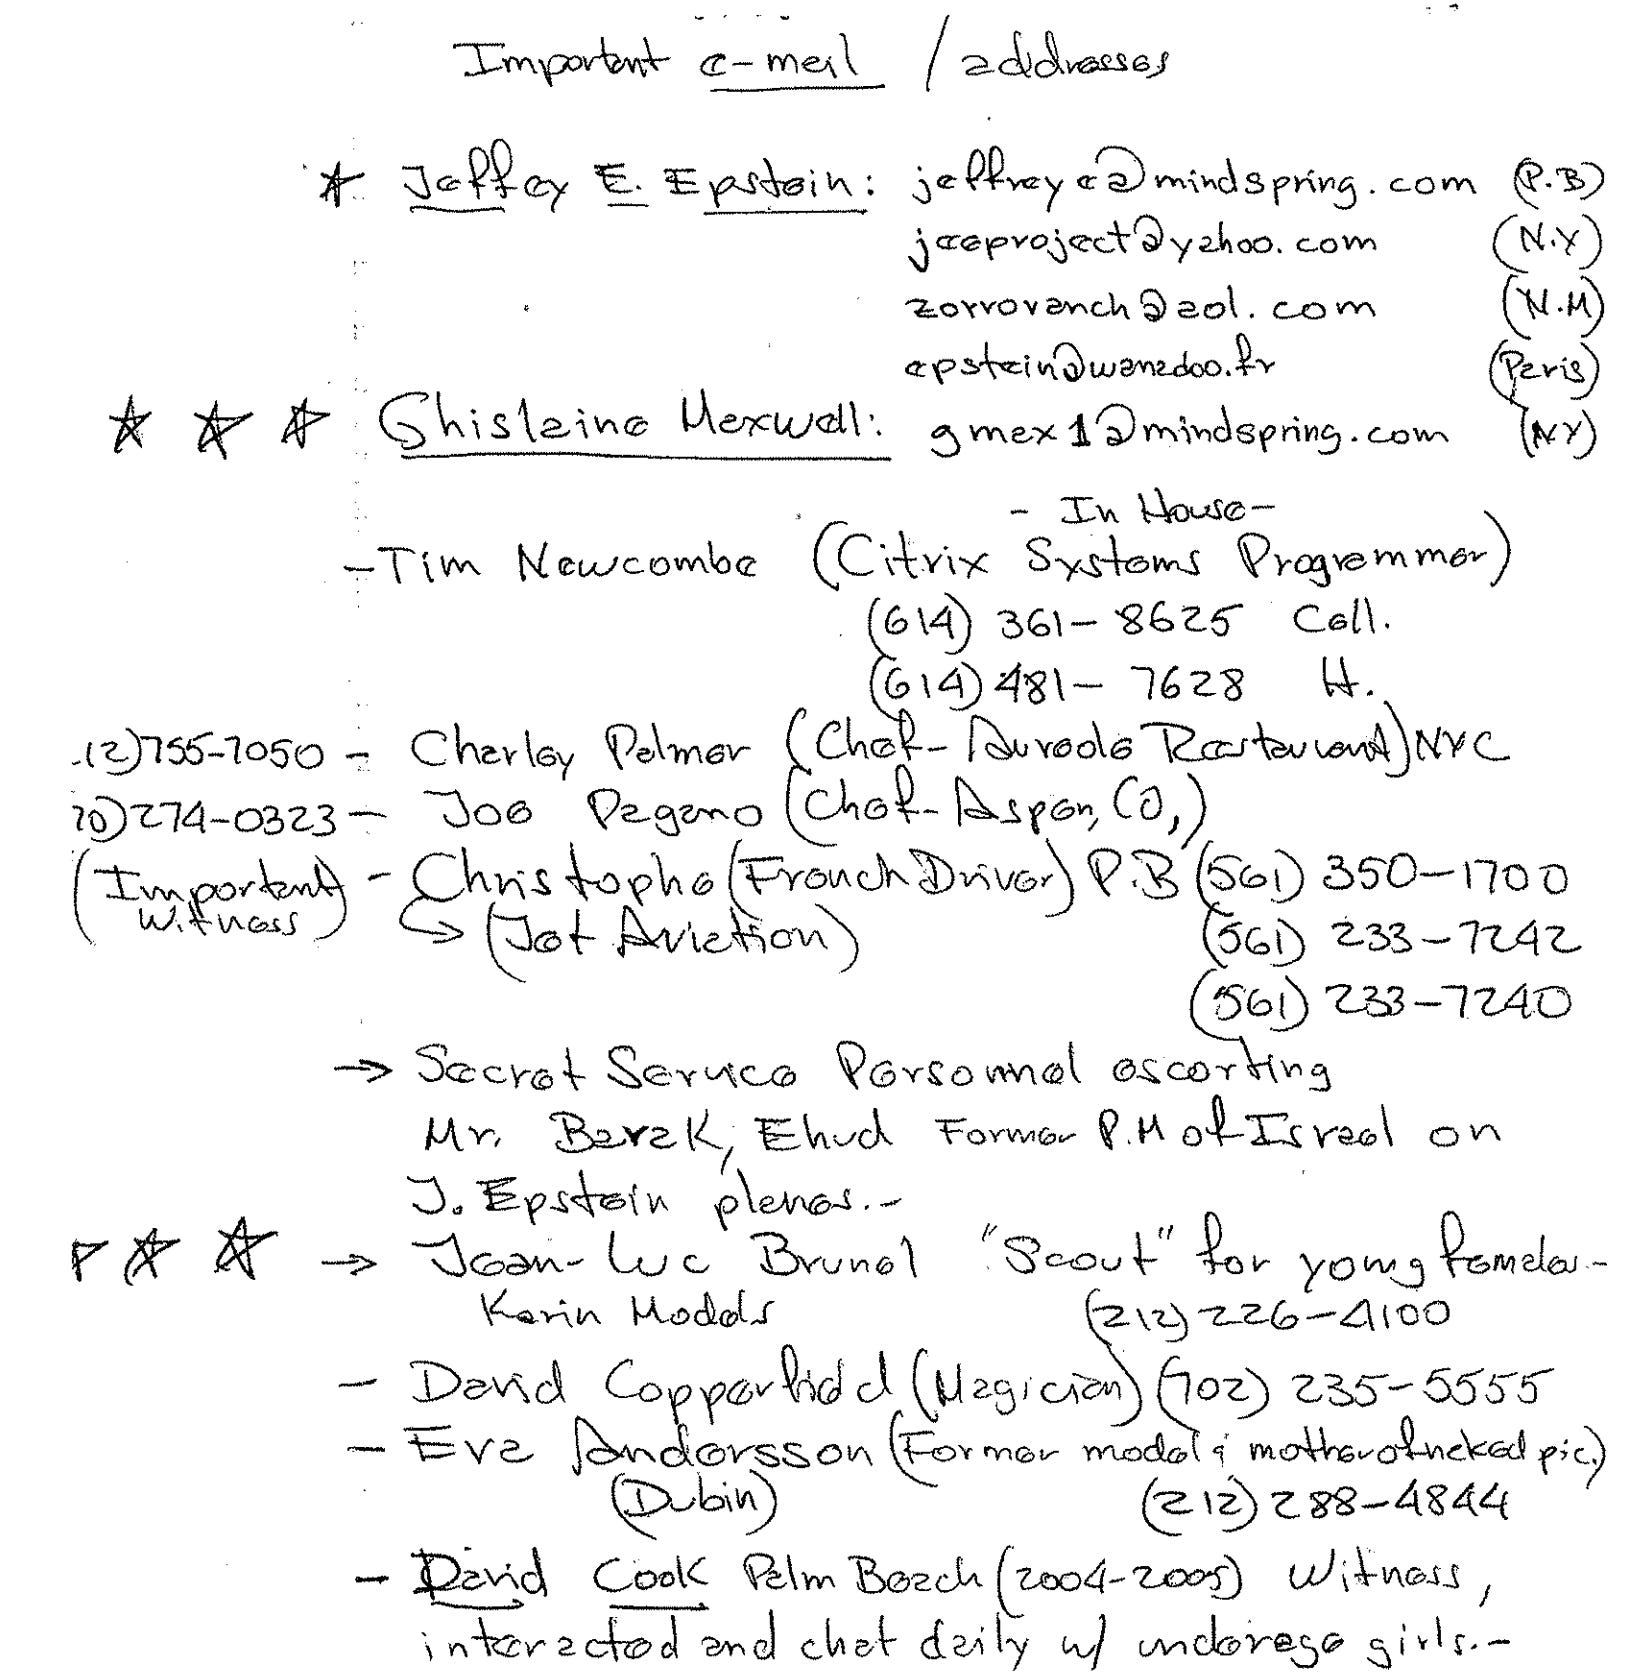 Important e-mail / addresses
* Jeffey E. Epstein: jeffreye@mindspring.com (P.B)
jeeproject@yahoo.com (N.Y)
zorroranch@aol.com (N.M)
epstein@wanadoo.fr (Paris)
☆ ☆ ☆ Ghislaine Maxwell: gmax1@mindspring.com (NY)
- In House -
- Tim Newcombe (Citrix Systems Programmer)
(614) 361-8625 Cell.
(614) 481-7628 H.
12)755-7050 - Charley Palmer (Chef- Aureole Restaurant) NYC
70)274-0323 - Joe Pagano (Chef- Aspen, CO,)
(Important - Christophe (French Driver) P.B (561) 350-1700
Witness) → (Jet Aviation) (561) 233-7242
(561) 233-7240
→ Secret Service Personnel escorting
Mr. Barak, Ehud Former P.M of Israel on
J. Epstein planes.-
☆ ☆ ☆ → Jean-Luc Brunel "Scout" for young females.-
Karin Models (212) 226-4100
- David Copperfield (Magician) (702) 235-5555
- Eva Andersson (Former model & mother of naked pic.)
(Dubin) (212) 288-4844
- David Cook Palm Beach (2004-2005) Witness,
interacted and chat daily w/ underage girls.-